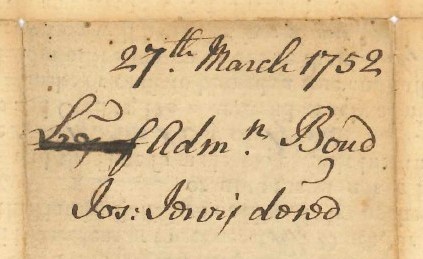 27th. March 1752
Admn. Bond
Jos: Jervis deced